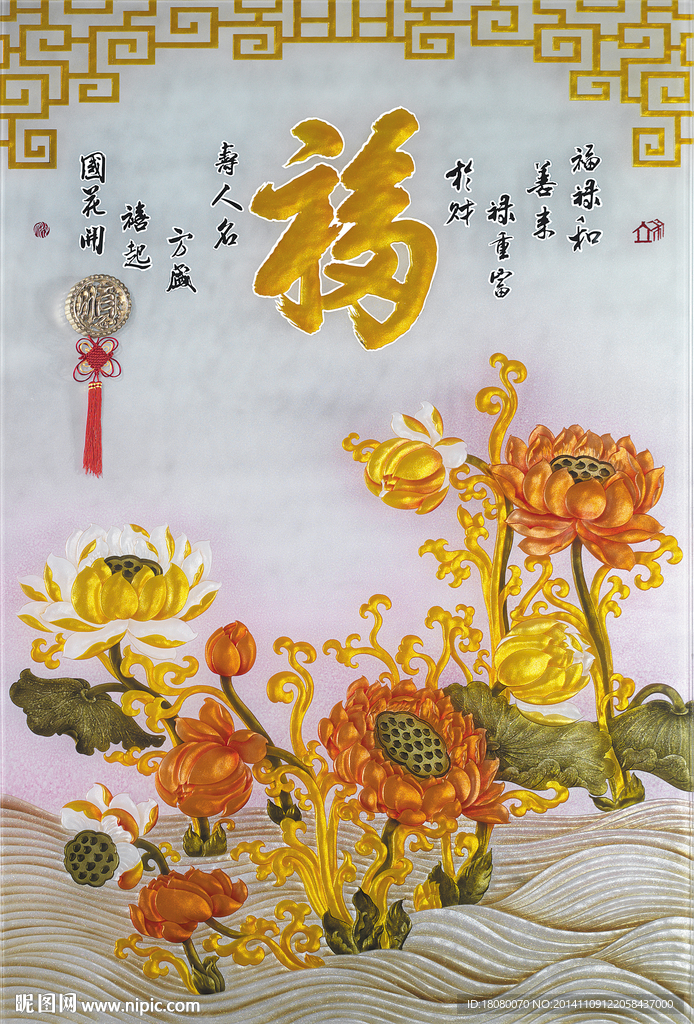 福禄和
善来
禄重富
於财
福
壽人名
方盛
禧起
國花開
順
昵图网 www.nipic.com
ID:18080070 NO:20141109122058437000